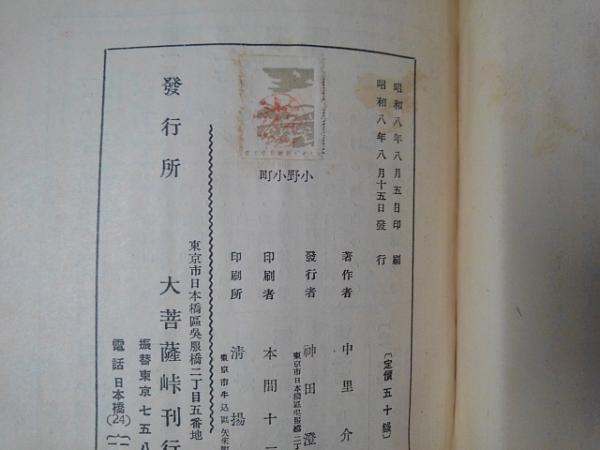 昭和八年八月五日印刷
昭和八年八月十五日發行
〔定價五十錢〕
小野小町
著作者 中里介
發行者 神田澄
東京市日本橋區吳服橋二丁
印刷者 本間十一
印刷所 淸揚
東京市牛込區矢來町
東京市日本橋區吳服橋二丁目五番地
發行所 大菩薩峠刊行
振替東京七五八
電話日本橋(24)